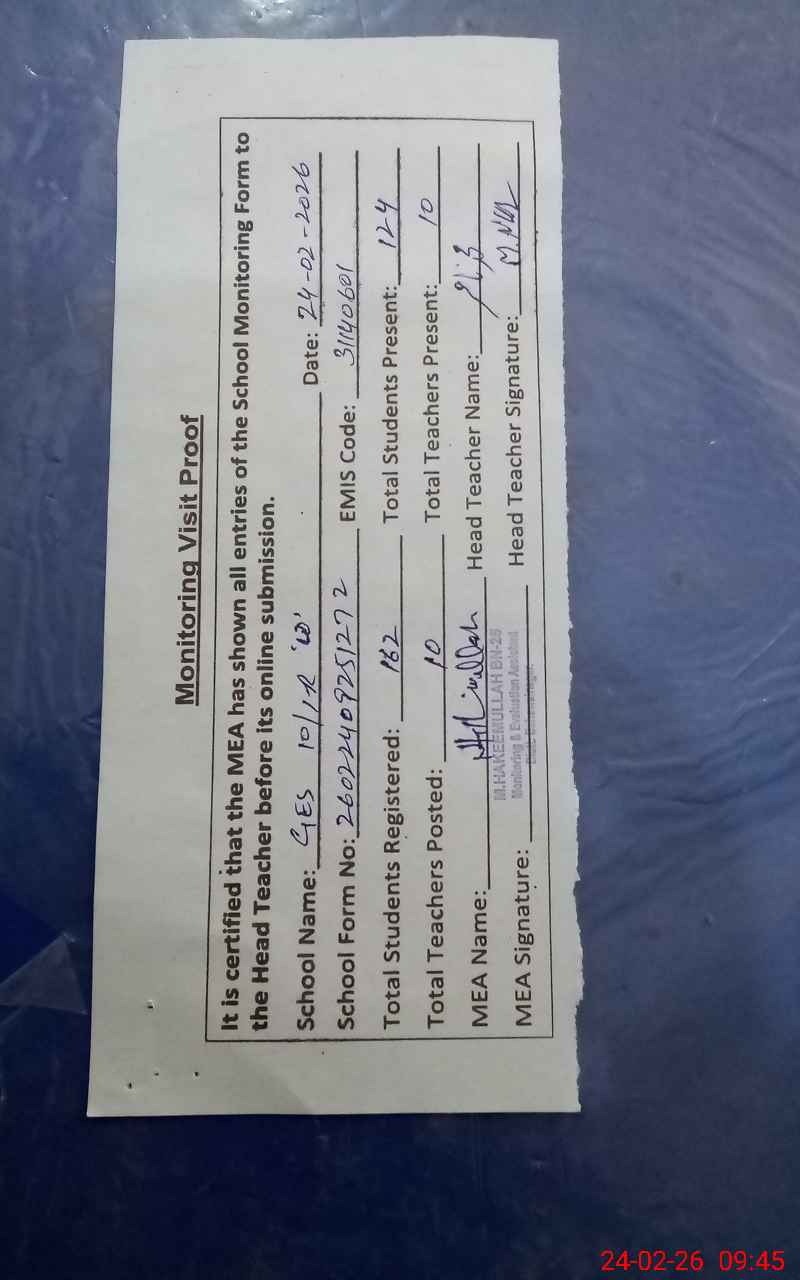 Monitoring Visit Proof
It is certified that the MEA has shown all entries of the School Monitoring Form to
the Head Teacher before its online submission.
School Name: GES 10/1R 'W' Date: 24-02-2026
School Form No: 26022409251272 EMIS Code: 31140601
Total Students Registered: 162 Total Students Present: 124
Total Teachers Posted: 10 Total Teachers Present: 10
MEA Name: Head Teacher Name:
M.HAKEEMULLAH BN-25
Monitoring & Evaluation Assistant
MEA Signature: Head Teacher Signature:
24-02-26 09:45